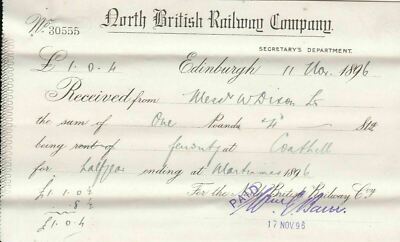 No. 30555 North British Railway Company.
SECRETARY'S DEPARTMENT.
£ 1.0.4 Edinburgh 11 Nov. 1896
Received from Messrs W Dixon Ld
the sum of One Pounds "4
being rent of at Coatbell
for halfyear ending at Martinmas 1896
£1.0.
.8½ For the British Railway Coy
PAID
£1.0.4
17 NOV. 96